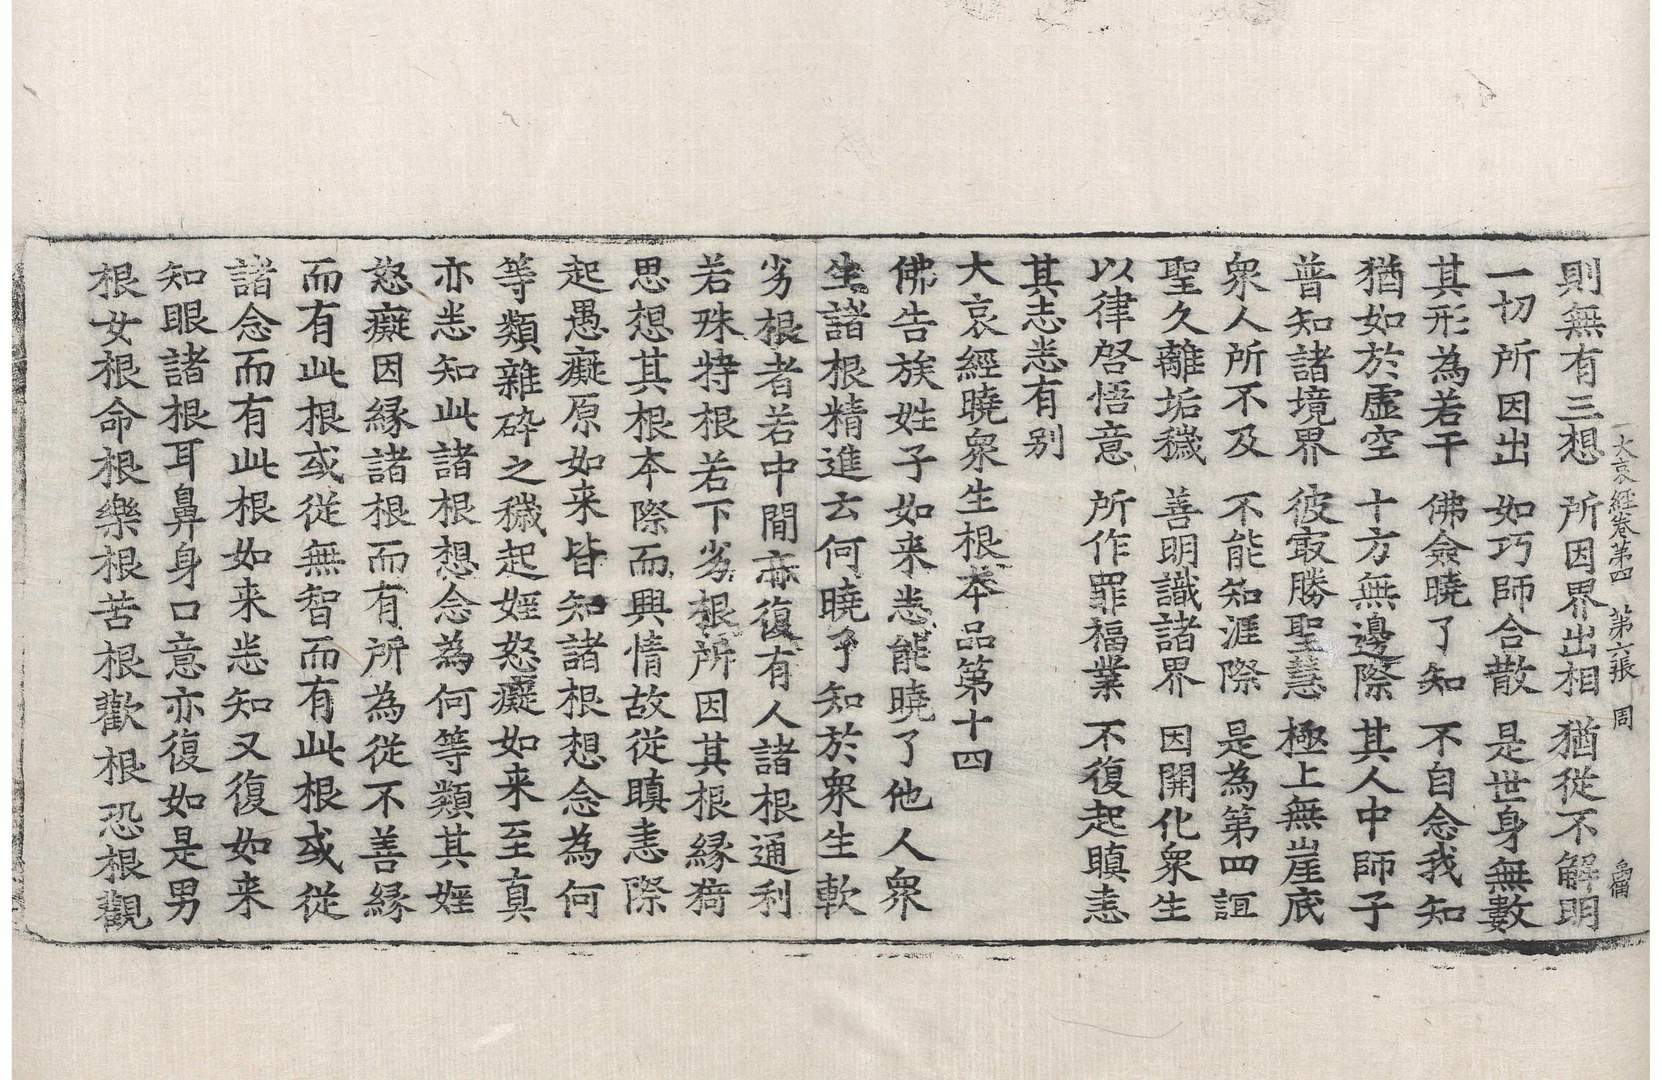 大哀經卷第四　第六張　周
則無有三想　所因界出相　猶從不解明
一切所因出　如巧師合散　是世身無數
其形為若干　佛僉曉了知　不自念我知
猶如於虛空　十方無邊際　其人中師子
普知諸境界　彼㝡勝聖慧　極上無崖底
衆人所不及　不能知涯際　是為第四誼
聖久離垢穢　善明識諸界　因開化衆生
以律啓悟意　所作罪福業　不復起瞋恚
其志悉有别
大哀經曉衆生根本品第十四
佛告族姓子如来悉能曉了他人衆
生諸根精進云何曉了知於衆生軟
劣根者若中間亦復有人諸根通利
若殊特根若下劣根所因其根縁猗
思想其根本際而興情故從瞋恚際
起愚癡原如来皆知諸根想念為何
等類雜碎之穢起婬怒癡如来至真
亦悉知此諸根想念為何等類其婬
怒癡因緣諸根而有所為從不善縁
而有此根或從無智而有此根或從
諸念而有此根如来悉知又復如来
知眼諸根耳鼻身口意亦復如是男
根女根命根樂根苦根歡根恐根觀